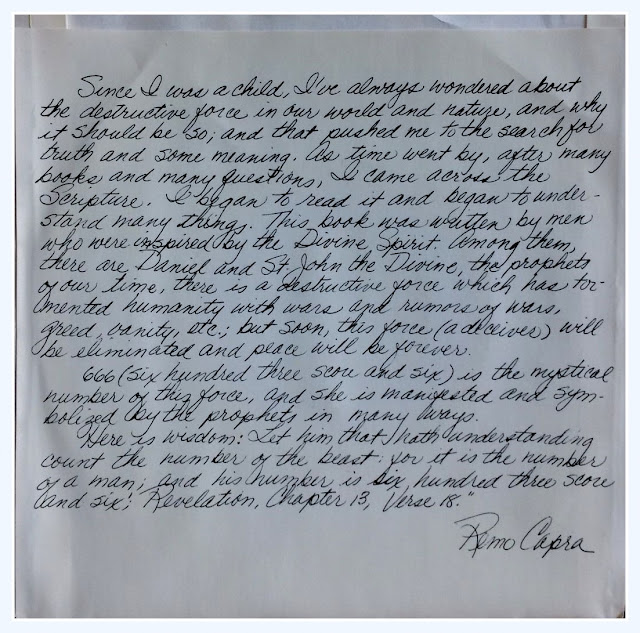 Since I was a child, I've always wondered about
the destructive force in our world and nature, and why
it should be so; and that pushed me to the search for
truth and some meaning. As time went by, after many
books and many questions, I came across the
Scripture. I began to read it and began to under-
stand many things. This book was written by men
who were inspired by the Divine Spirit. Among them,
there are Daniel and St. John the Divine, the prophets
of our time, there is a destructive force which has tor-
mented humanity with wars and rumors of wars,
greed, vanity, etc.; but soon, this force (a deceiver) will
be eliminated and peace will be forever.
666 (six hundred three score and six) is the mystical
number of this force, and she is manifested and sym-
bolized by the prophets in many ways.
Here is wisdom: Let him that hath understanding
count the number of the beast: for it is the number
of a man; and his number is six hundred three score
and six; Revelation, Chapter 13, Verse 18."
Remo Capra